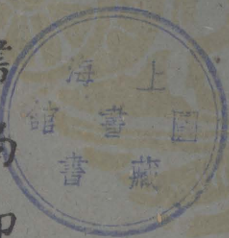 上海
圖書館
藏書